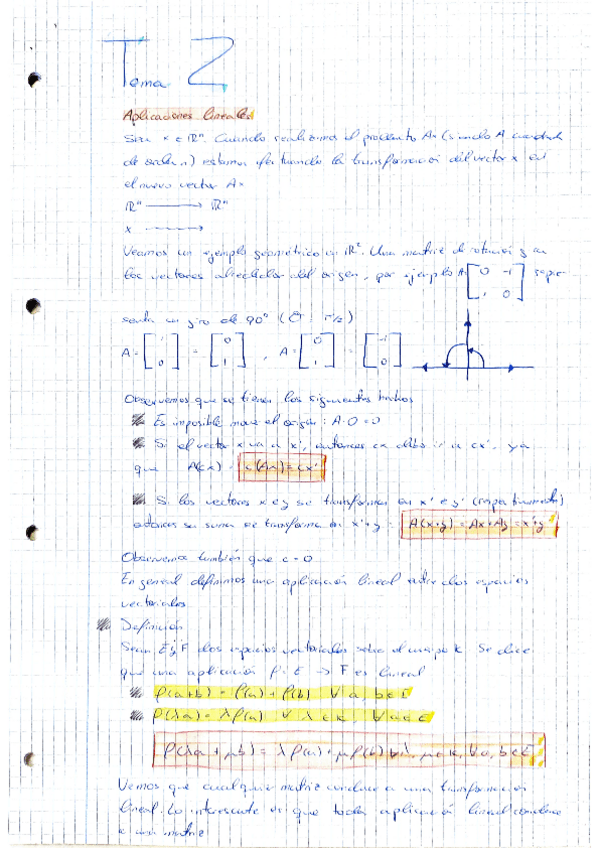 Tema 2
Aplicaciones lineales
Sea x ∈ ℝⁿ. Cuando realizamos el producto Ax (siendo A cuadrada
de orden n) estamos efectuando la transformación del vector x en
el nuevo vector Ax
ℝⁿ ⟶ ℝⁿ
x ⟶
Veamos un ejemplo geométrico en ℝ². Una matriz de rotación
los vectores alrededor del origen, por ejemplo A: [0 -1; 1 0] repre
senta un giro de 90° (θ = π/2)
A = [1; 0] = [0; 1] , A = [0; 1] = [-1; 0]
Observemos que se tienen los siguientes hechos
Es imposible mover el origen: A·0 = 0
Si el vector x va a x', entonces cx debe ir a cx', ya
que A(cx) = c(Ax) = cx'
Si los vectores x e y se transforman en x' e y' (respectivamente)
entonces su suma se transforma en x'+y' A(x+y) = Ax+Ay = x'+y'
Observemos también que c = 0
En general definimos una aplicación lineal entre dos espacios
vectoriales
Definición
Sean E y F dos espacios vectoriales sobre el cuerpo K. Se dice
que una aplicación f: E → F es lineal
f(a+b) = f(a) + f(b) ∀ a, b ∈ E
f(λa) = λf(a) ∀ λ ∈ K, ∀ a ∈ E
f(λa + μb) = λf(a) + μf(b) ∀ λ, μ ∈ K, ∀ a, b ∈ E
Vemos que cualquier matriz conduce a una transformación
lineal. Lo interesante es que toda aplicación lineal conduce
a una matriz